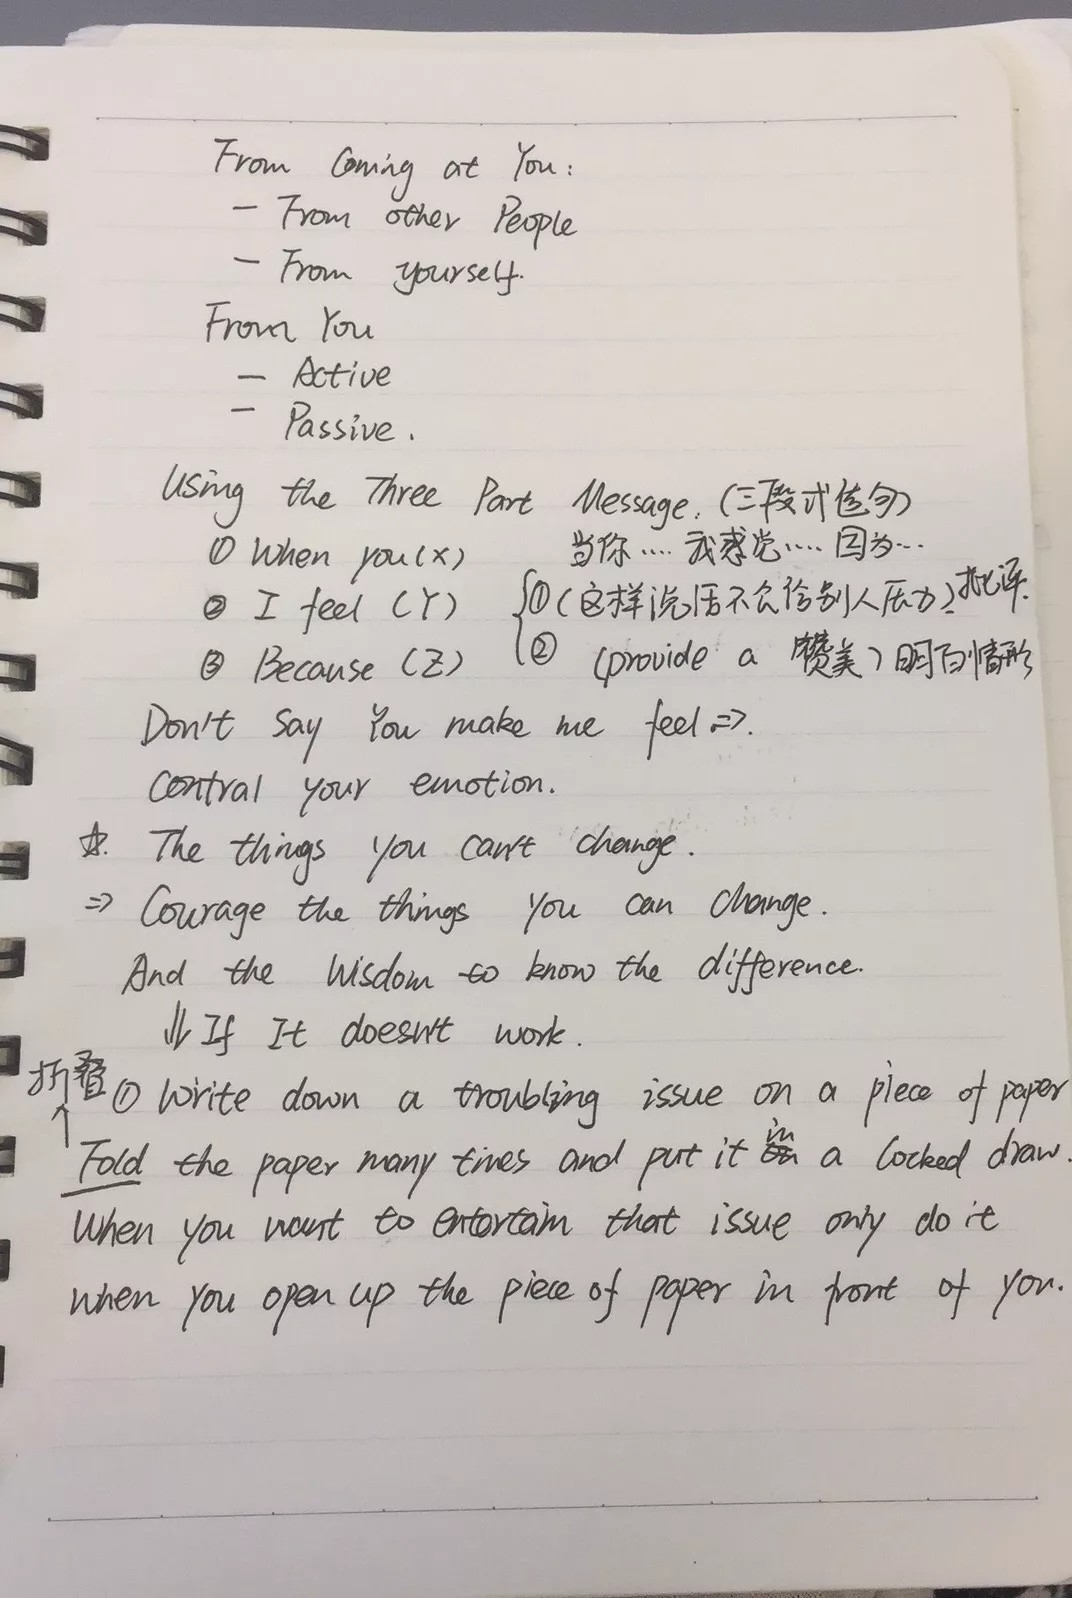 From Coming at You:
- From other People
- From yourself.
From You
- Active
- Passive.
Using the Three Part Message. (三段式造句)
① When you(X) 当你.... 我感觉..... 因为...
② I feel (Y) ①(这样说话不会给别人压力) 批评.
③ Because (Z) ② (provide a 赞美) 明白情形
Don't Say You make me feel ⇒.
Contral your emotion.
☆. The things you can't change.
⇒ Courage the things you can change.
And the Wisdom to know the difference.
⇓ If It doesn't work.
折叠 ① Write down a troubling issue on a piece of paper
↑
Fold the paper many times and put it in a locked draw.
When you want to entertain that issue only do it
when you open up the piece of paper in front of you.